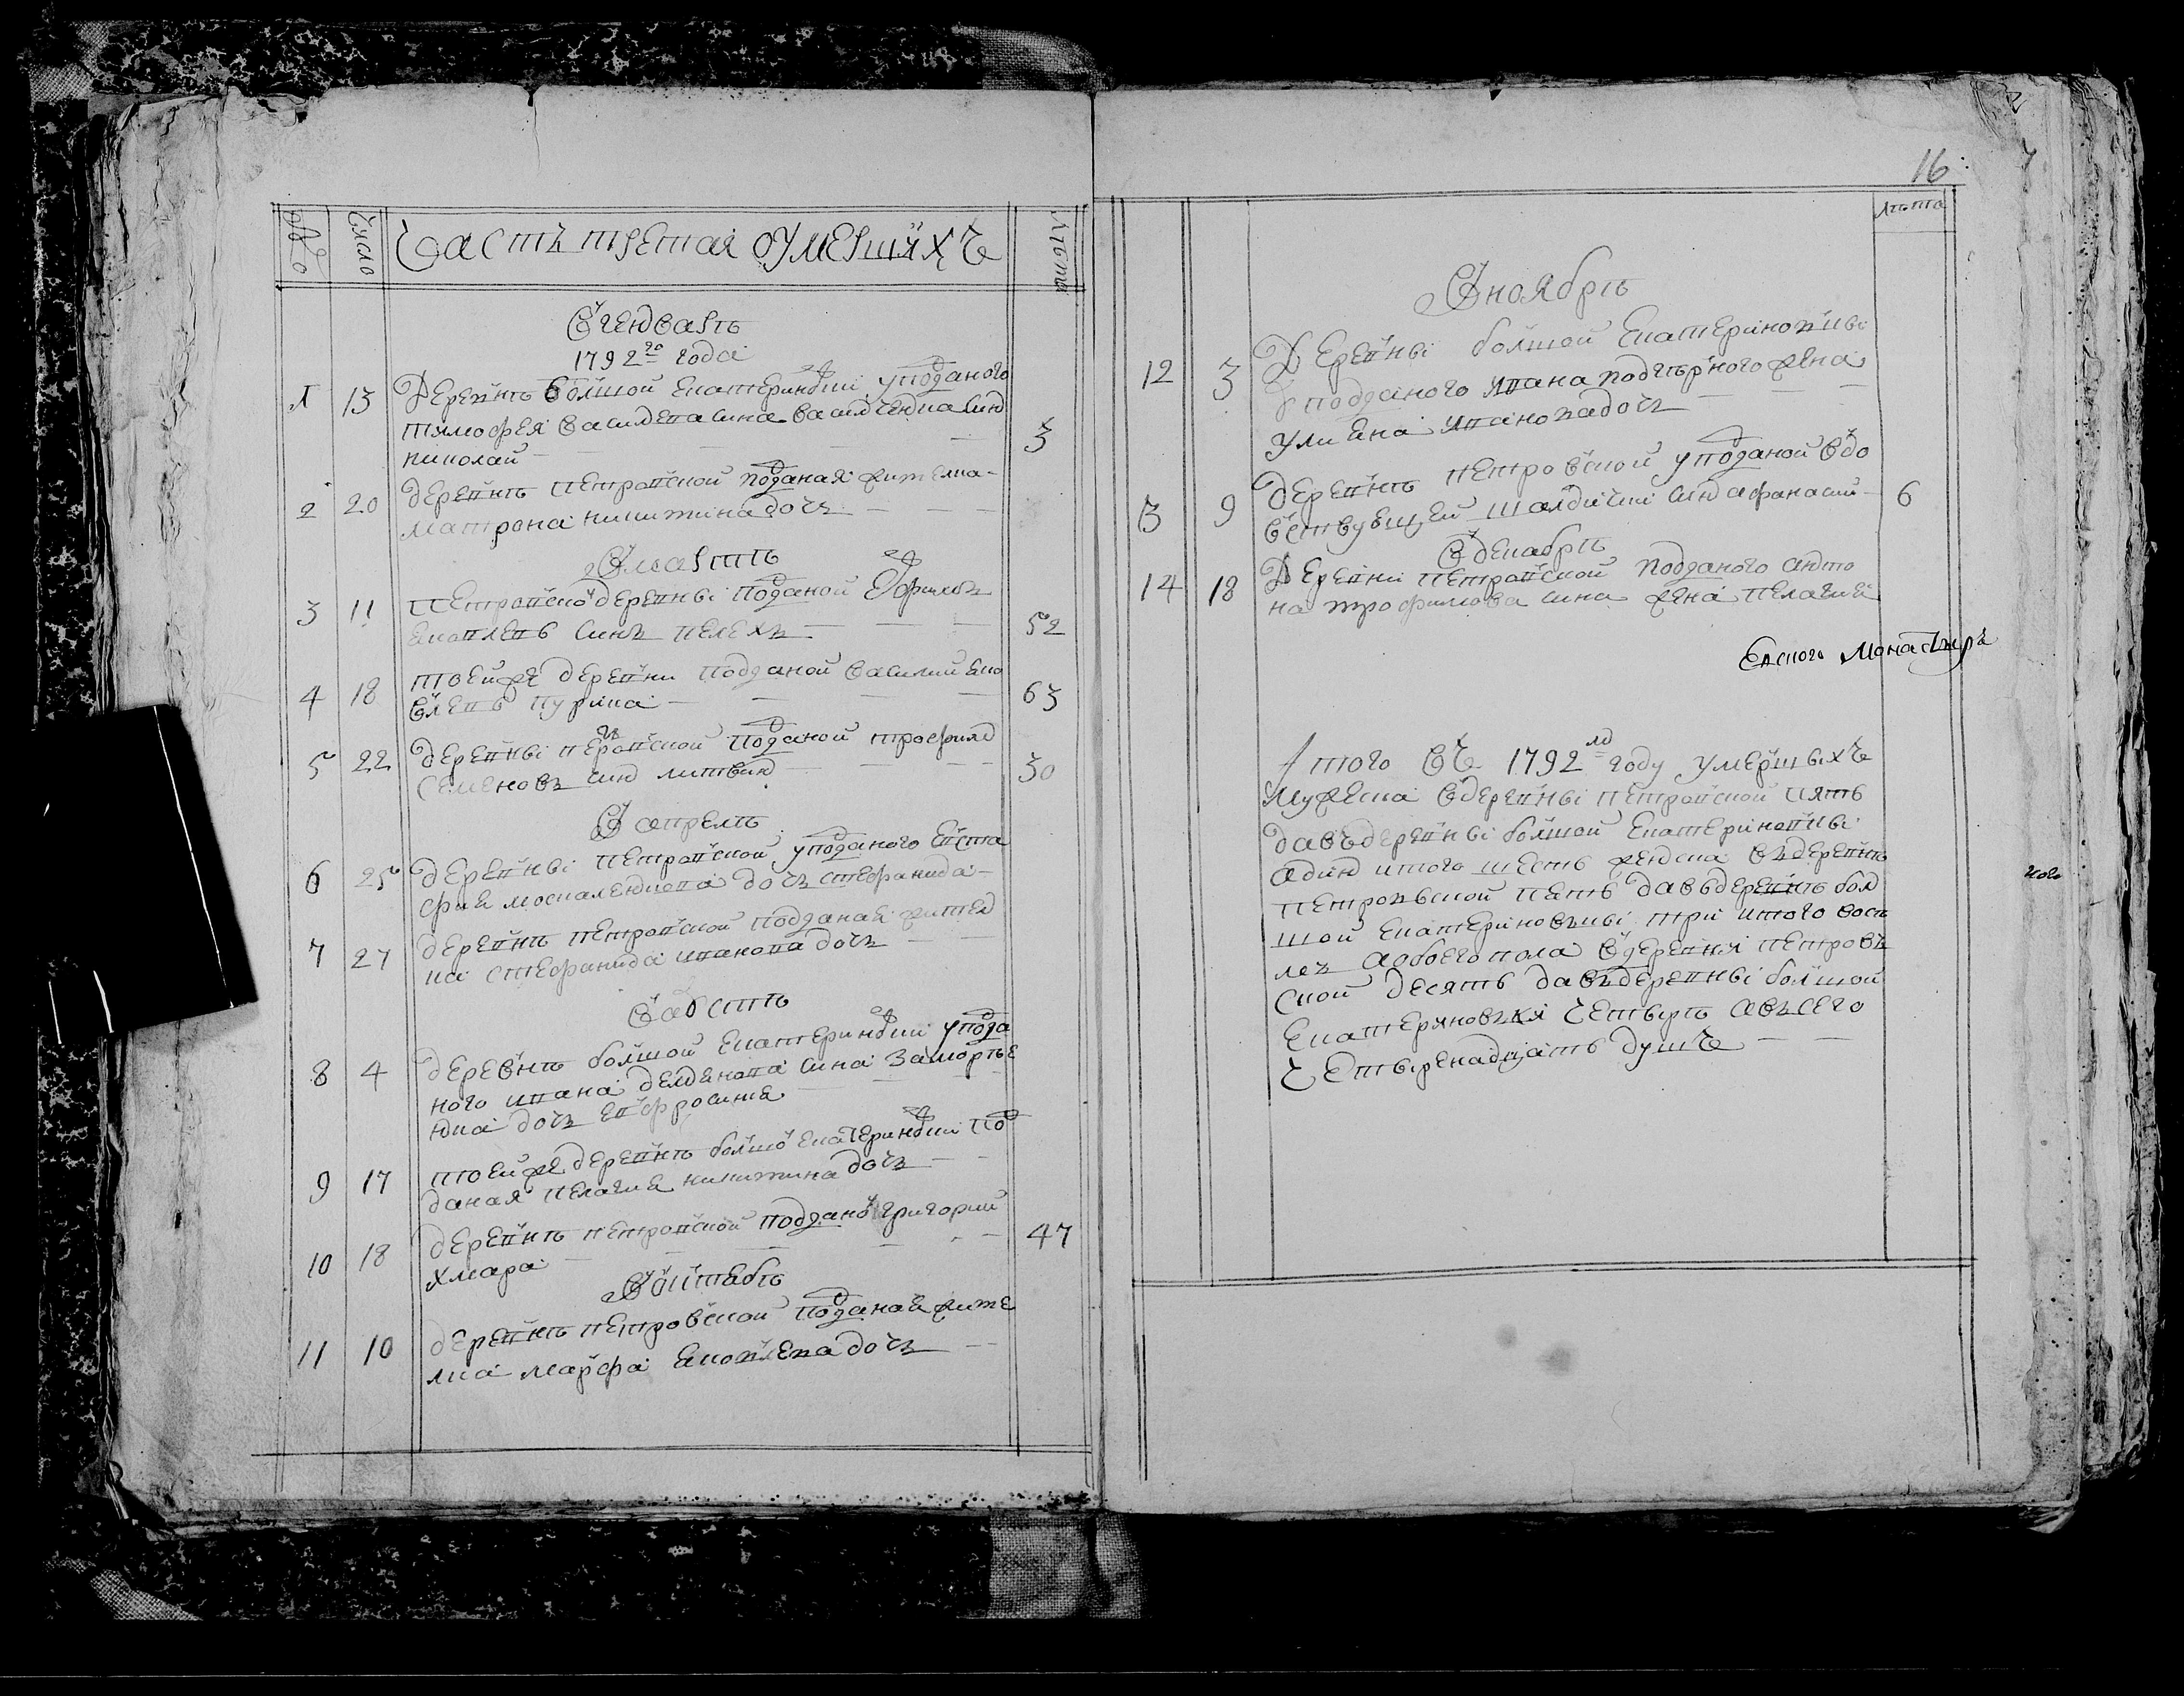 № Число Часть третая оумершихъ лѣта
В генварѣ
1792го года
1 13 Деревнѣ болшой Екатериновки у поданого
тимофея василева сина василченка син
николай 3
2 20 деревнѣ петровской поданая жителка
матрона никитина дочь
В мартѣ
3 11 Петровской деревни поданой
синъ 52
4 18 тоей же деревни подданой василий яко
влевъ 63
5 22 деревни петровской поданой трофим
семеновъ син литвин 30
В апрелѣ
6 25 деревни петровской у поданого евста
фия москаленкова дочь стефанида
7 27 деревнѣ петровской подданая жител
ка стефанида иванова дочь
В августѣ
8 4 деревнѣ болшой Екатериновки у пода
ного ивана демянова сина
дочь евфросиния
9 17 тоей же деревнѣ болшой Екатериновки под
даная пелагия никитина дочь
10 18 деревнѣ петровской подданой григорий
хмара 47
В октябрѣ
11 10 деревнѣ петровской поданая жите
лка марфа яковлева дочь
16
лѣта
В ноябрѣ
12 3 Деревни болшой Екатериновки
у подданого ивана жена
улияна иванова дочь
13 9 деревнѣ петровской у поданой вдо
вствующей син афанасий 6
В декабрѣ
14 18 Деревни петровской подданого анто
на трофимова сина жена пелагия
Монастиря
Итого въ 1792м году умершихъ
мужеска в деревни петровской пять
да въ деревни болшой Екатериновки
адин итого шесть женска въ деревнѣ
петровской пять да въ деревнѣ бол
шой Екатериновъки три итого восе
мъ а обоего пола в деревня петровъ
ской десять да въ деревни болшой
Екатериновъки четвире а въсего
четвиренадцать душъ